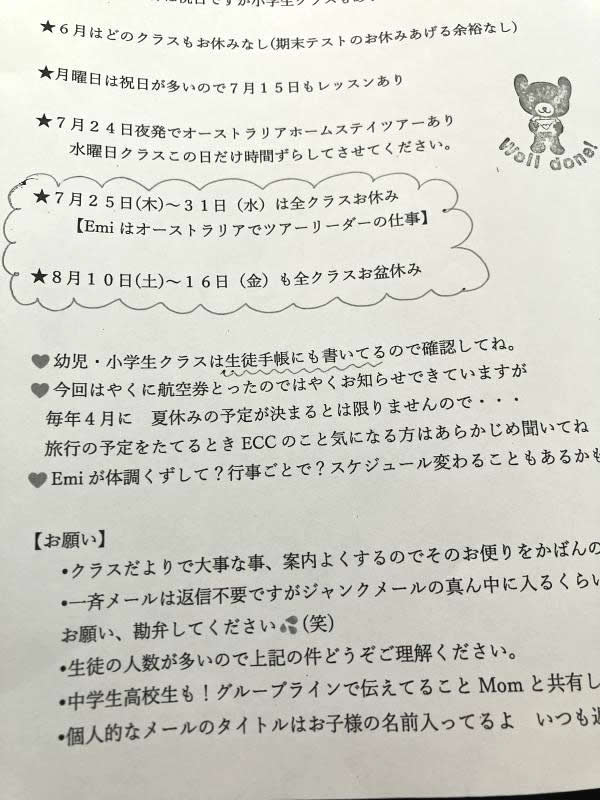 は祝日ですが小学生クラスもあ
★６月はどのクラスもお休みなし(期末テストのお休みあげる余裕なし)
★月曜日は祝日が多いので７月１５日もレッスンあり
★７月２４日夜発でオーストラリアホームステイツアーあり
水曜日クラスこの日だけ時間ずらしてさせてください。
Well done!
★７月２５日(木)～３１日（水）は全クラスお休み
【Emi はオーストラリアでツアーリーダーの仕事】
★８月１０日(土)～１６日（金）も全クラスお盆休み
♥幼児・小学生クラスは生徒手帳にも書いてるので確認してね。
♥今回はやくに航空券とったのではやくお知らせできていますが
毎年４月に　夏休みの予定が決まるとは限りませんので・・・
旅行の予定をたてるとき ECC のこと気になる方はあらかじめ聞いてね
♥Emi が体調くずして？行事ごとで？スケジュール変わることもあるかも
【お願い】
•クラスだよりで大事な事、案内よくするのでそのお便りをかばんの
•一斉メールは返信不要ですがジャンクメールの真ん中に入るくらい
お願い、勘弁してください💦(笑)
•生徒の人数が多いので上記の件どうぞご理解ください。
•中学生高校生も！グループラインで伝えてること Mom と共有し
•個人的なメールのタイトルはお子様の名前入ってるよ　いつも